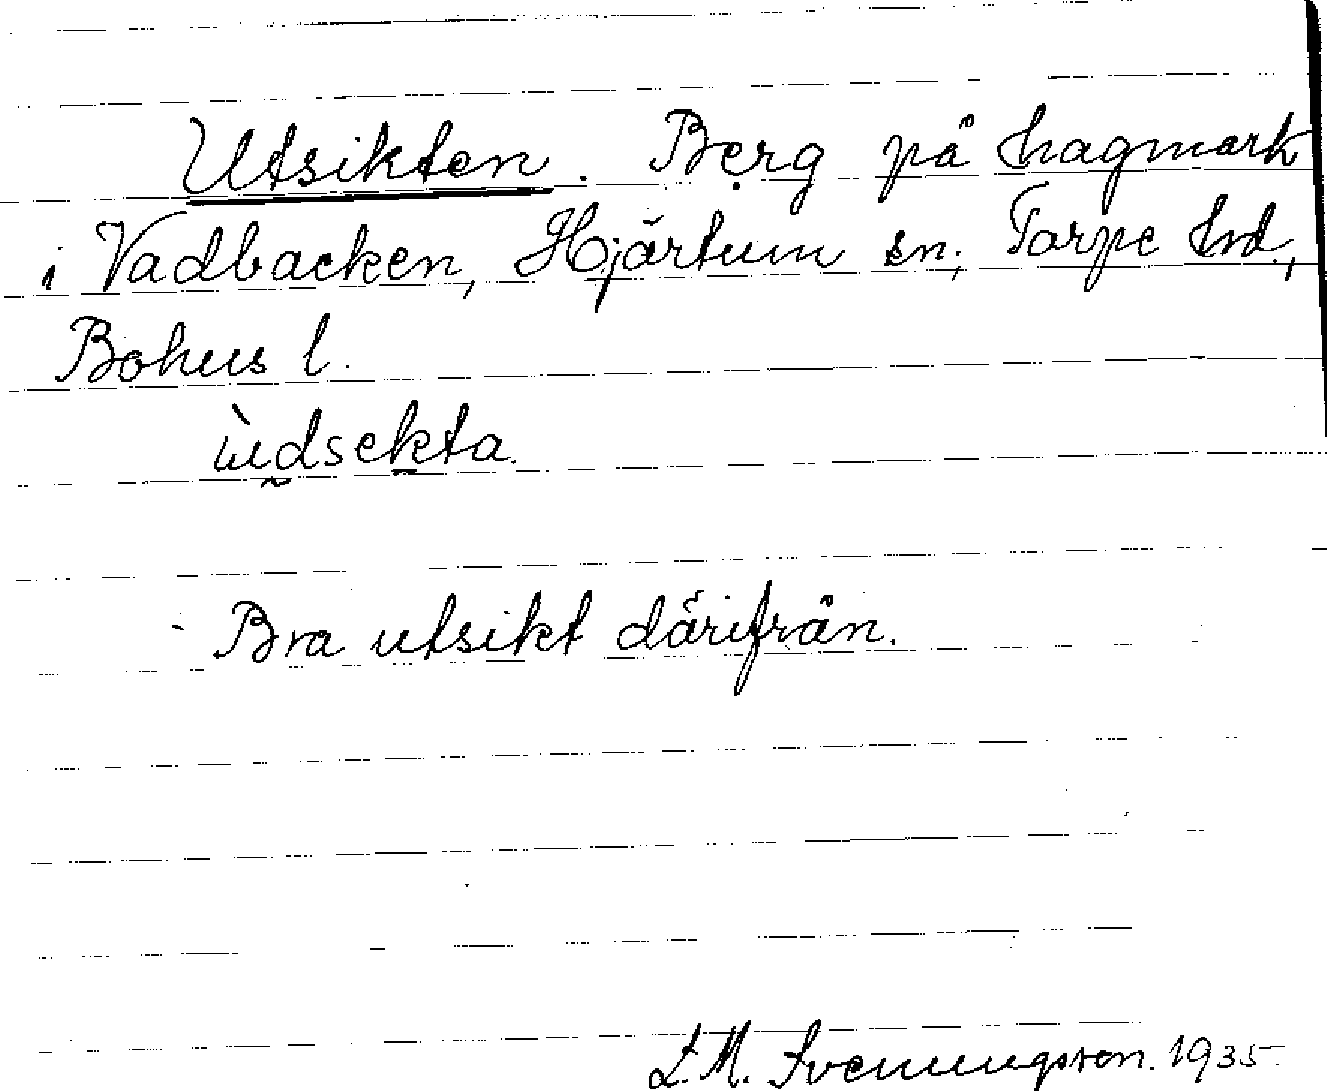 Utsikten. Berg på hagmark
i Vadbacken, Hjärtum sn, Torpe hd.,
Bohus l.
ùdsekta.
Bra utsikt därifrån.
L.M. Svenungsson. 1935